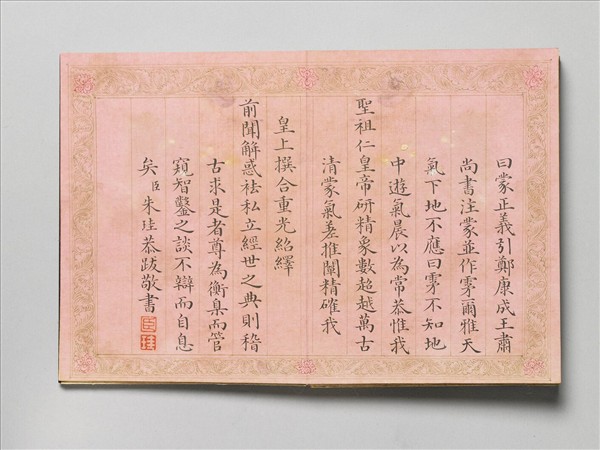 曰蒙正義引鄭康成王肅
尚書注蒙並作雺爾雅天
氣下地不應曰雺不知地
中遊氣晨以為常恭惟我
聖祖仁皇帝研精象數超越萬古
清蒙氣差推闡精確我
皇上撰合重光紹繹
前聞解惑祛私立經世之典則稽
古求是者尊為衡臬而管
窺智鑿之談不辯而自息
矣臣朱珪恭跋敬書
臣珪